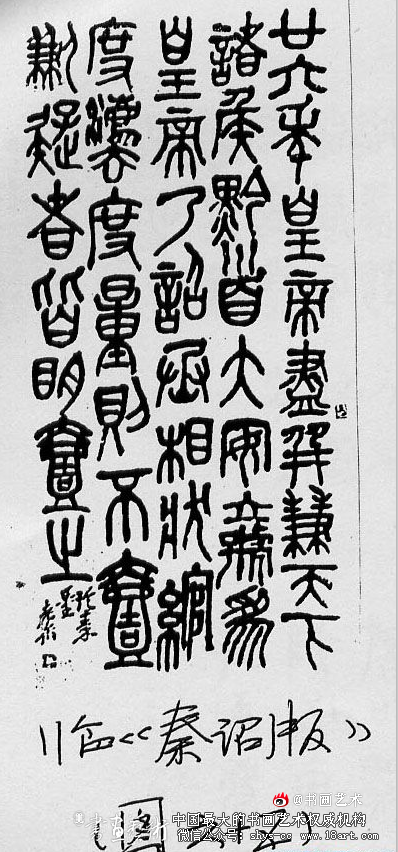 廿六年皇帝盡并兼天下
諸侯黔首大安立號為
皇帝乃詔丞相狀綰
度灋度量則不壹
歉疑者皆明壹之
临《秦诏版》
@书画艺术
中国最大的书画艺术权威机构
微信公众号：shys-cc www.18art.com